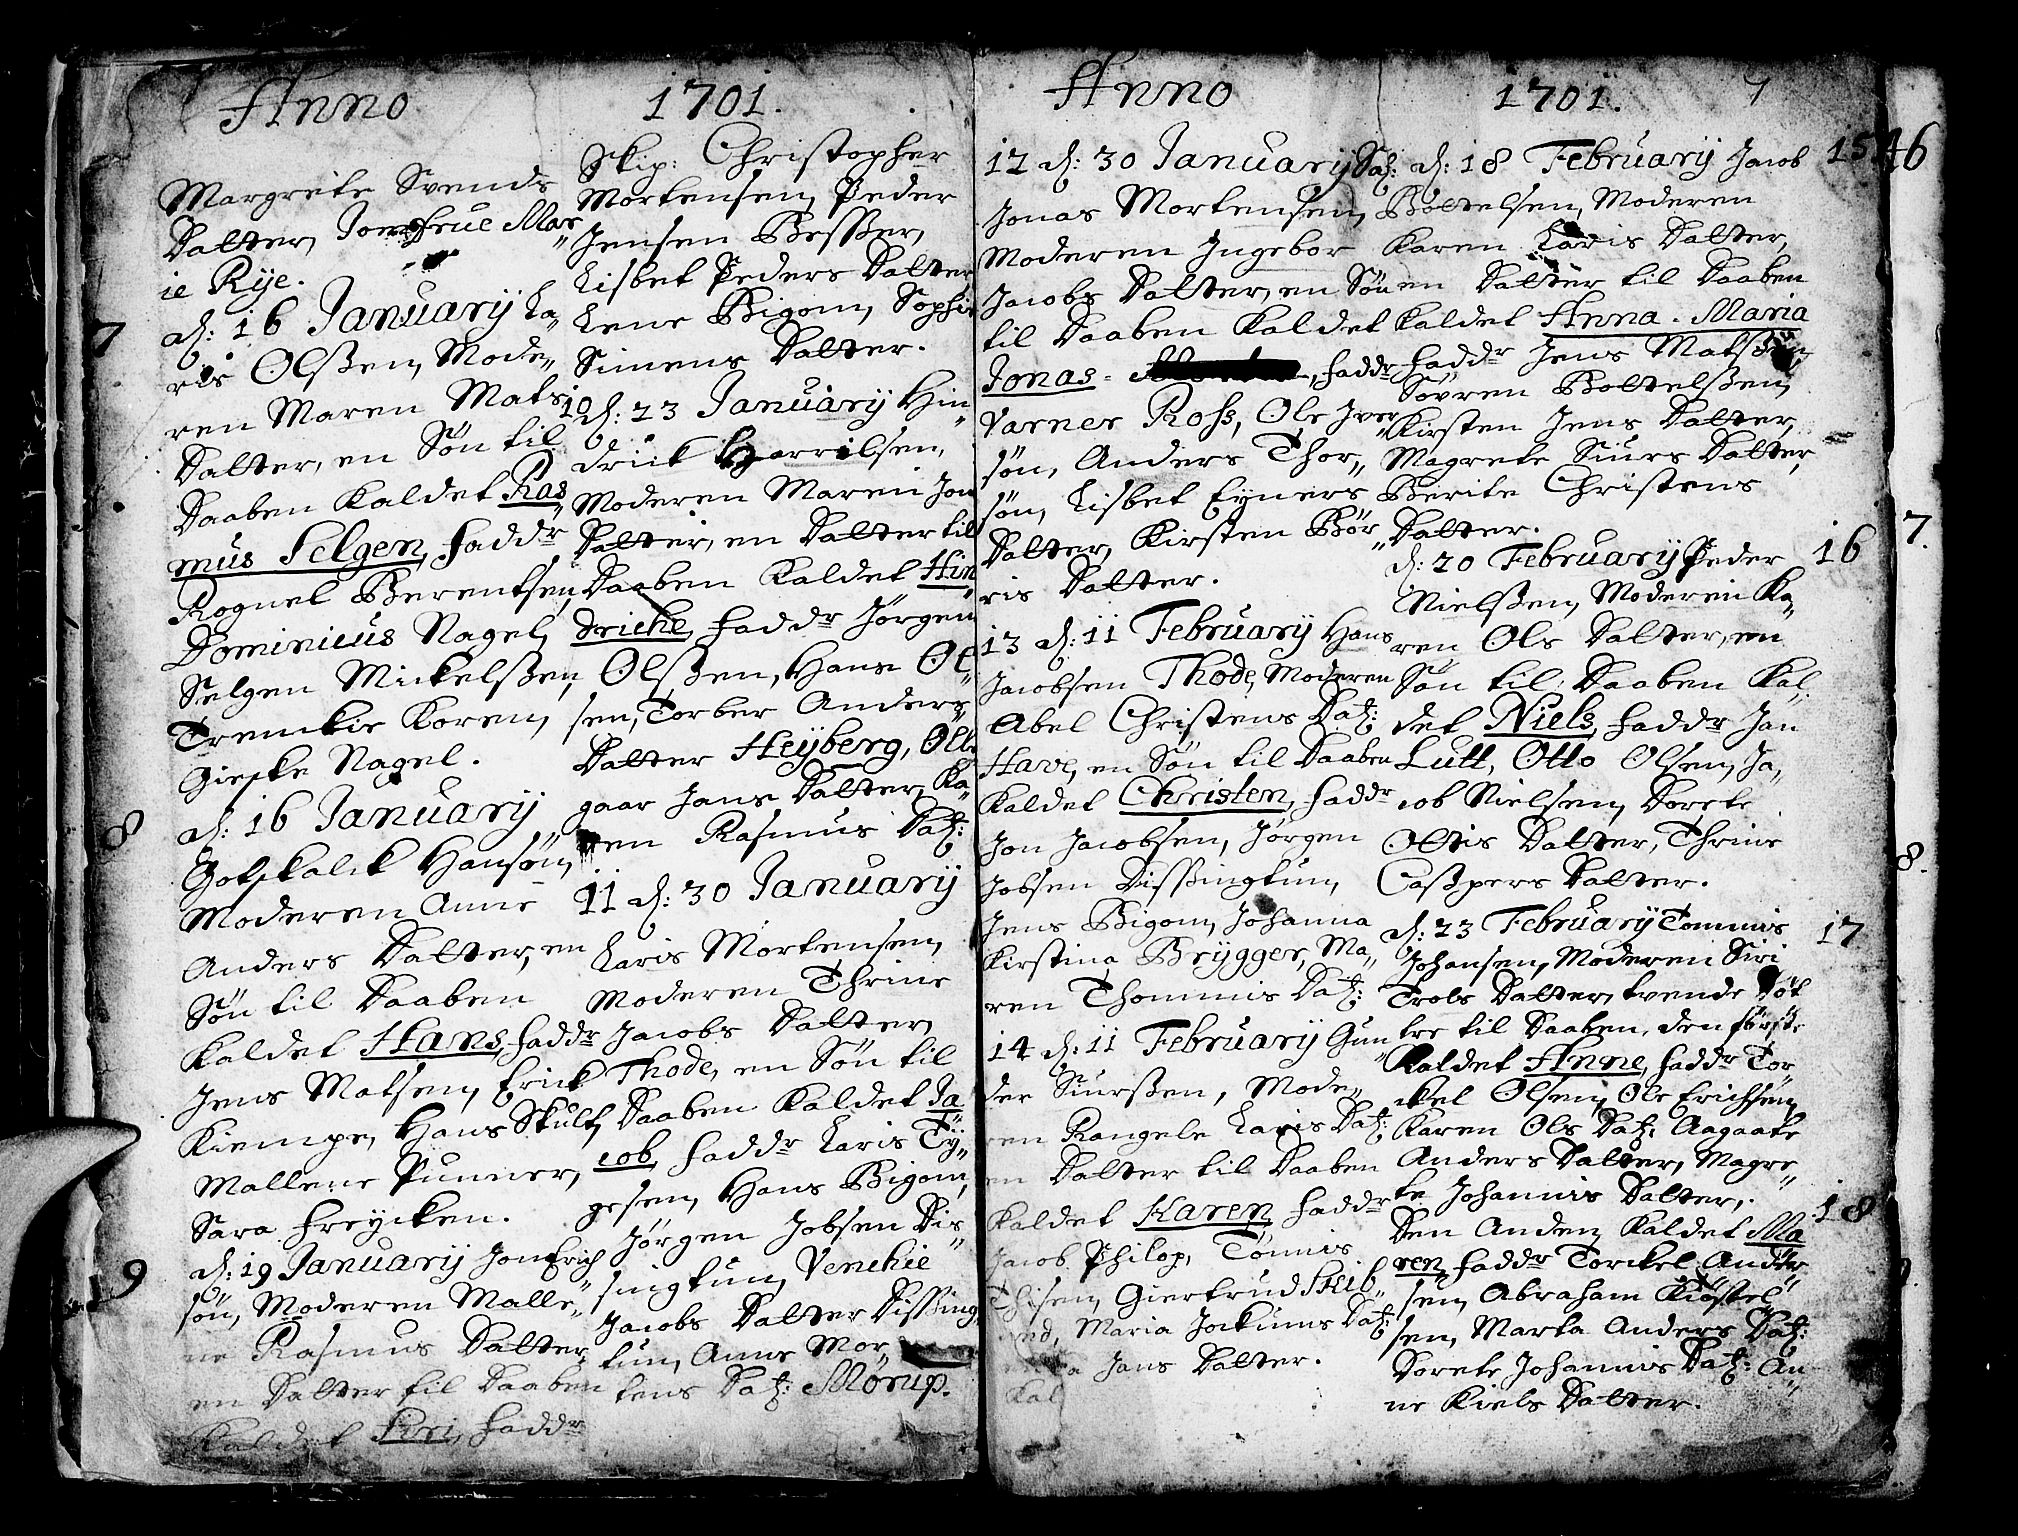 Anno 1701.
Margrete Svends
Datter, Jomfrue Mar
ie Rÿe.
7 d: 16 Januarÿ La„
ris Olßen, Mode„
ren Maren Mats
Datter, en Søn til
Daaben Kaldet Ras„
mus Selgen, fadd:r
Rognel Berentsen,
Dominicus Nagel,
Selgen Mickelßen,
Tremkie Koren,
Gieske Nagel.
8 d: 16 Januarÿ
Gotskalck Hansøn,
Moderen Anne
Anders Datter, en
Søn til Daaben
Kaldet Hans, fadd:r
Jens Matsen, Erick
Kiempe, Hans Skult,
Mallene Punner,
Sara Freÿcken.
9 d: 19 Januarÿ Jon Erich
søn, Moderen Malle„
ne Rasmus Datter,
en Datter til Daaben
Kaldet Siri, fadd:r
Skip: Christopher
Mortensen, Peder
Jensen Beßer,
Lisbet Peders Datter
Lene Bigom, Sophie
Simens Datter.
10 d: 23 Januarÿ Hin„
drick Harrilsen,
Moderen Maren Jon
Datter, en Datter til
Daaben Kaldet Hin
driche, fadd:r Jørgen
Olßen, Hans Ol„
sen, Torber Anders
Datter Heÿberg, Oll„
gaar Jans Datter, Ka„
ren Rasmus Dat:
11 d: 30 Januarÿ
Laris Mortensen,
Moderen Thrine
Jacobs Datter
Thode, en Søn til
Daaben Kaldet Ja„
cob, fadd:r Laris Tÿ„
gesen, Hans Bigom,
Jørgen Jobsen Dis„
singtun, Venchie
Jacobs Datter Dissing„
tun, Anne Mor„
tens Dat: Mørup.
Anno 1701. 7
12 d: 30 Januarÿ
Jonas Mortensen,
Moderen Ingebor
Jacobs Datter, en Søn
til Daaben Kaldet
Jonas, fadd:r
Varner Roß, Ole Iver„
søn, Anders Thor„
søn, Lisbet Eÿners
Datter, Kirsten Bør„
ris Datter.
13 d: 11 Februarÿ Hans
Jacobsen Thode, Moderen
Abel Christens Dat:
Have, en Søn til Daaben
Kaldet Christen, fadd:r
Jon Jacobsen, Jørgen
Jobsen Dissingtun,
Jens Bigom, Johanna
Kirstina Brÿgger, Ma„
ren Thommis Dat:
14 d: 11 Februarÿ Gun„
der Siurßen, Mode„
ren Rangele Laris Dat:
en Datter til Daaben
Kaldet Karen, fadd:r
Jacob Philop, Tønnis
Thisen, Giertrud Stub„
Maria Jockums Dat:
Jans Datter.
Kal
15 d: 18 Februarÿ Jacob 46
Bottelsen, Moderen
Karen Laris Datter,
en Datter til Daaben
Kaldet Anna Maria
fadd:r Jens Matßen,
Søvren Bottelßen,
Kirsten Jens Datter,
Magrete Siurs Datter,
Berite Christens
Datter.
16 d: 20 Februarÿ Peder
Nielßen, Moderen Ka„
ren Ols Datter, en
Søn til Daaben Kal„
det Niels, fadd:r Jan
Lutt, Otto Olsen, Ja„
cob Nielsen, Dorete
Ottis Datter, Thrine
Caßpers Datter.
17 d: 23 Februarÿ Tommis
Johansen, Moderen Siri
Trols Datter, tvende Døt
tre til Daaben, den første
Kaldet Anne, fadd:r Tor„
ckel Olsen, Ole Erichsen,
Karen Ols Dat: Aagaate
Anders Datter, Magre„
te Johannis Datter,.
18 Den Anden Kaldet Ma
ren, fadd:r Torckel Ander
sen, Abraham Kiøstel„
sen, Marta Anders Dat:
Dorete Johannis Dat: An„
ne Kiels Datter.
7.
8.